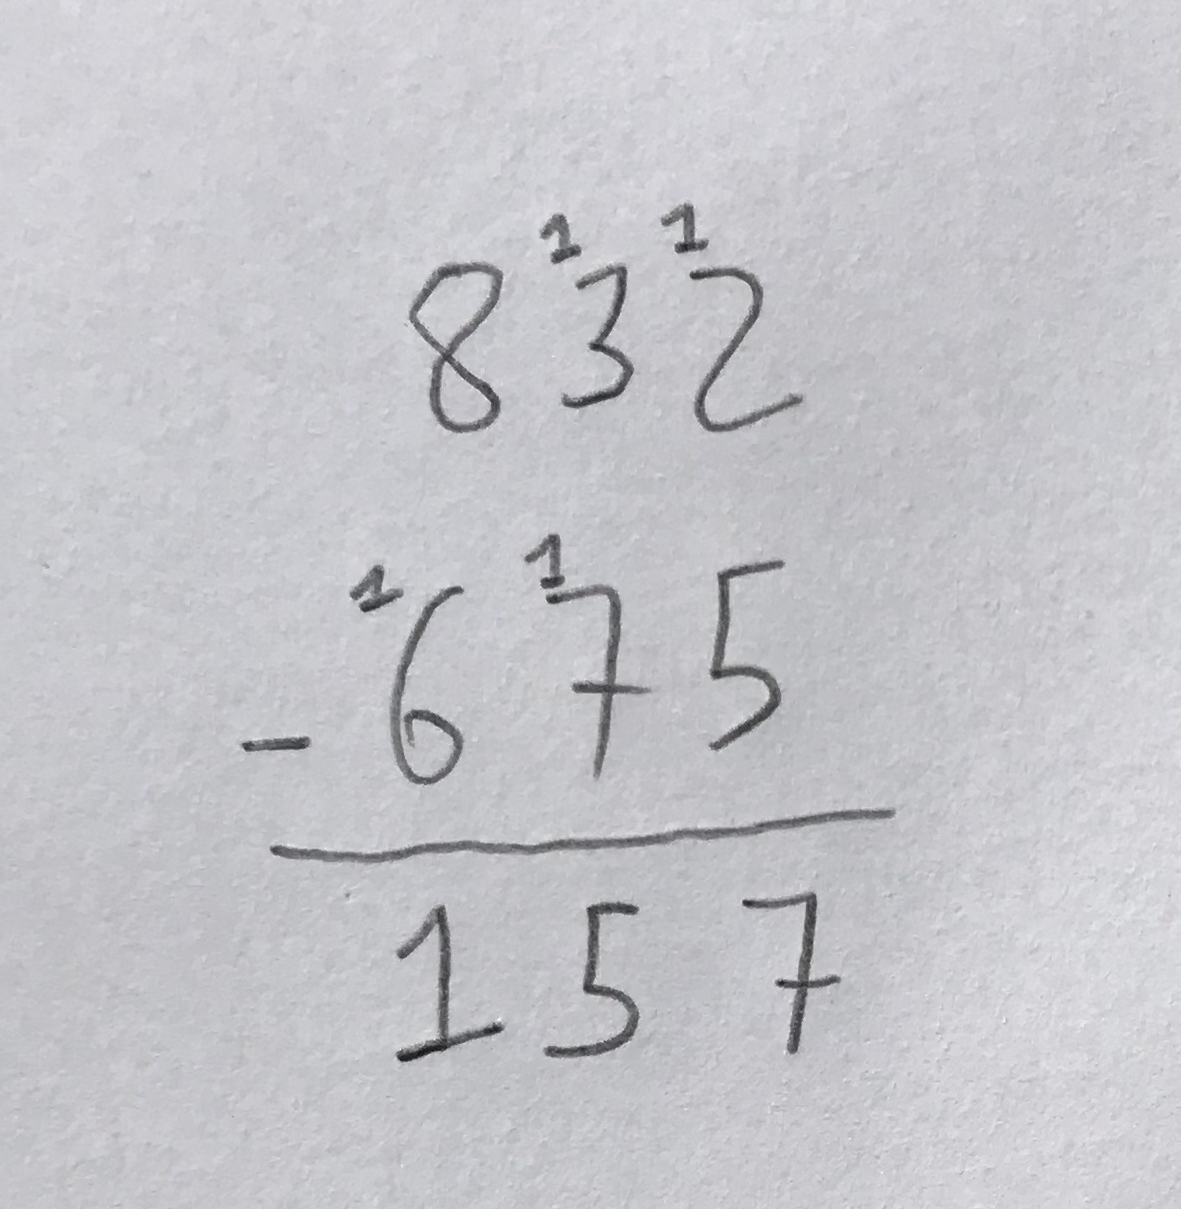 8¹3¹2
- ¹6¹75
157